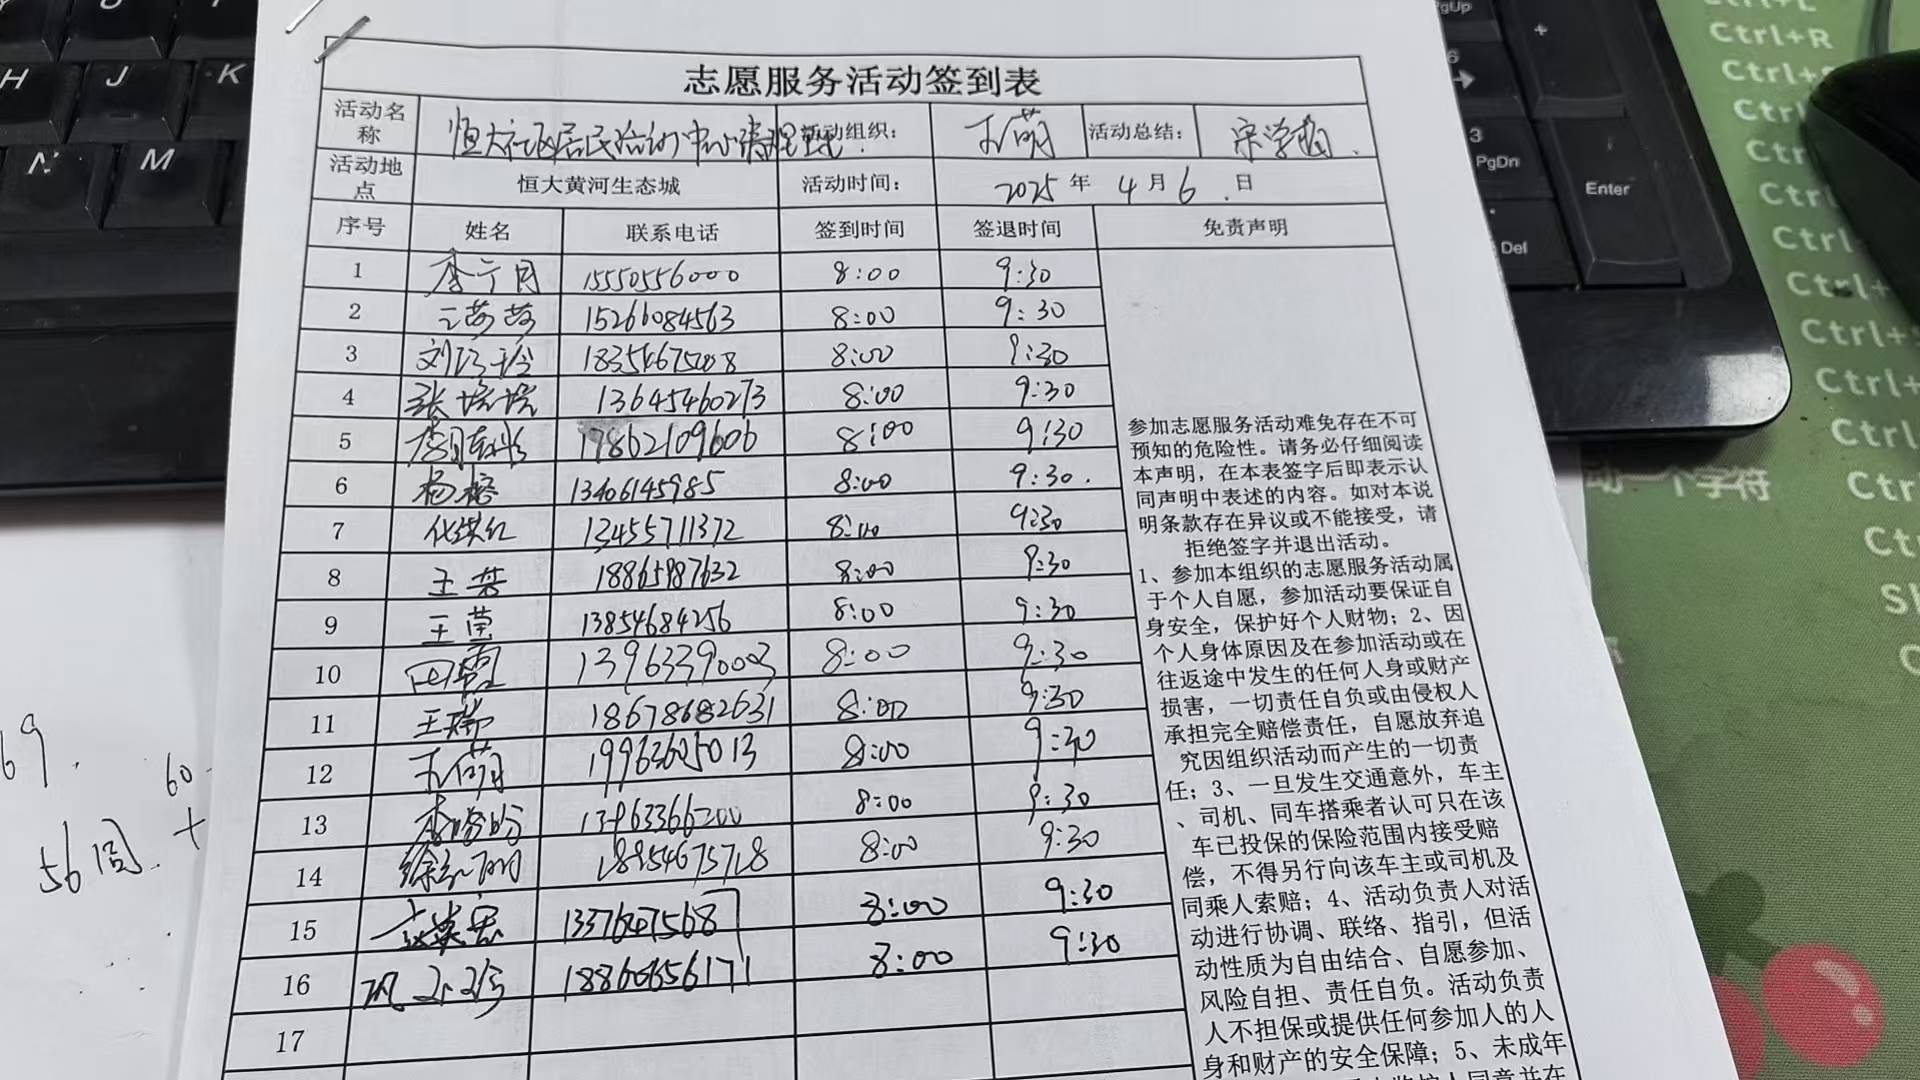 志愿服务活动签到表
活动名称 恒大社区居民活动中心清理 活动组织： 王萌 活动总结： 宋学
活动地点 恒大黄河生态城 活动时间： 2025 年 4 月 6 日
序号 姓名 联系电话 签到时间 签退时间 免责声明
1 李宁月 15550556000 8:00 9:30
2 王莎莎 15266084563 8:00 9:30
3 刘巧玲 18354675008 8:00 9:30
4 张培培 13645460273 8:00 9:30
5 17862109606 8:00 9:30
6 杨榕 13406145985 8:00 9:30
7 13455711372 8:00 9:30
8 王芸 18865987632 8:00 9:30
9 王莹 13854684256 8:00 9:30
10 田霞 13963390003 8:00 9:30
11 王瑞 18678682631 8:00 9:30
12 王萌 19963605013 8:00 9:30
13 13963366200 8:00 9:30
14 18954675728 8:00 9:30
15 13376475687 8:00 9:30
16 18860656171 8:00 9:30
17
参加志愿服务活动难免存在不可
预知的危险性。请务必仔细阅读
本声明，在本表签字后即表示认
同声明中表述的内容。如对本说
明条款存在异议或不能接受，请
拒绝签字并退出活动。
1、参加本组织的志愿服务活动属
于个人自愿，参加活动要保证自
身安全，保护好个人财物；2、因
个人身体原因及在参加活动或在
往返途中发生的任何人身或财产
损害，一切责任自负或由侵权人
承担完全赔偿责任，自愿放弃追
究因组织活动而产生的一切责
任；3、一旦发生交通意外，车主
、司机、同车搭乘者认可只在该
车已投保的保险范围内接受赔
偿，不得另行向该车主或司机及
同乘人索赔；4、活动负责人对活
动进行协调、联络、指引，但活
动性质为自由结合、自愿参加、
风险自担、责任自负。活动负责
人不担保或提供任何参加人的人
身和财产的安全保障；5、未成年
69.
60
56周 +
H J K
N M
PgUp
+
6
3
PgDn
Enter
Del
Ctrl+L
Ctrl+R
动一个字符